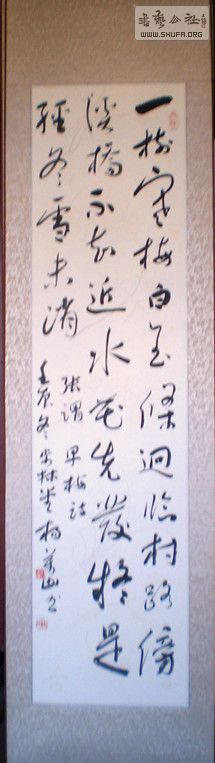 書藝公社
WWW.SHUFA.ORG
一树寒梅白玉條迥临村路傍
溪橋不知近水花先發疑是
經冬雪未消
张谓早梅诗
壬辰冬